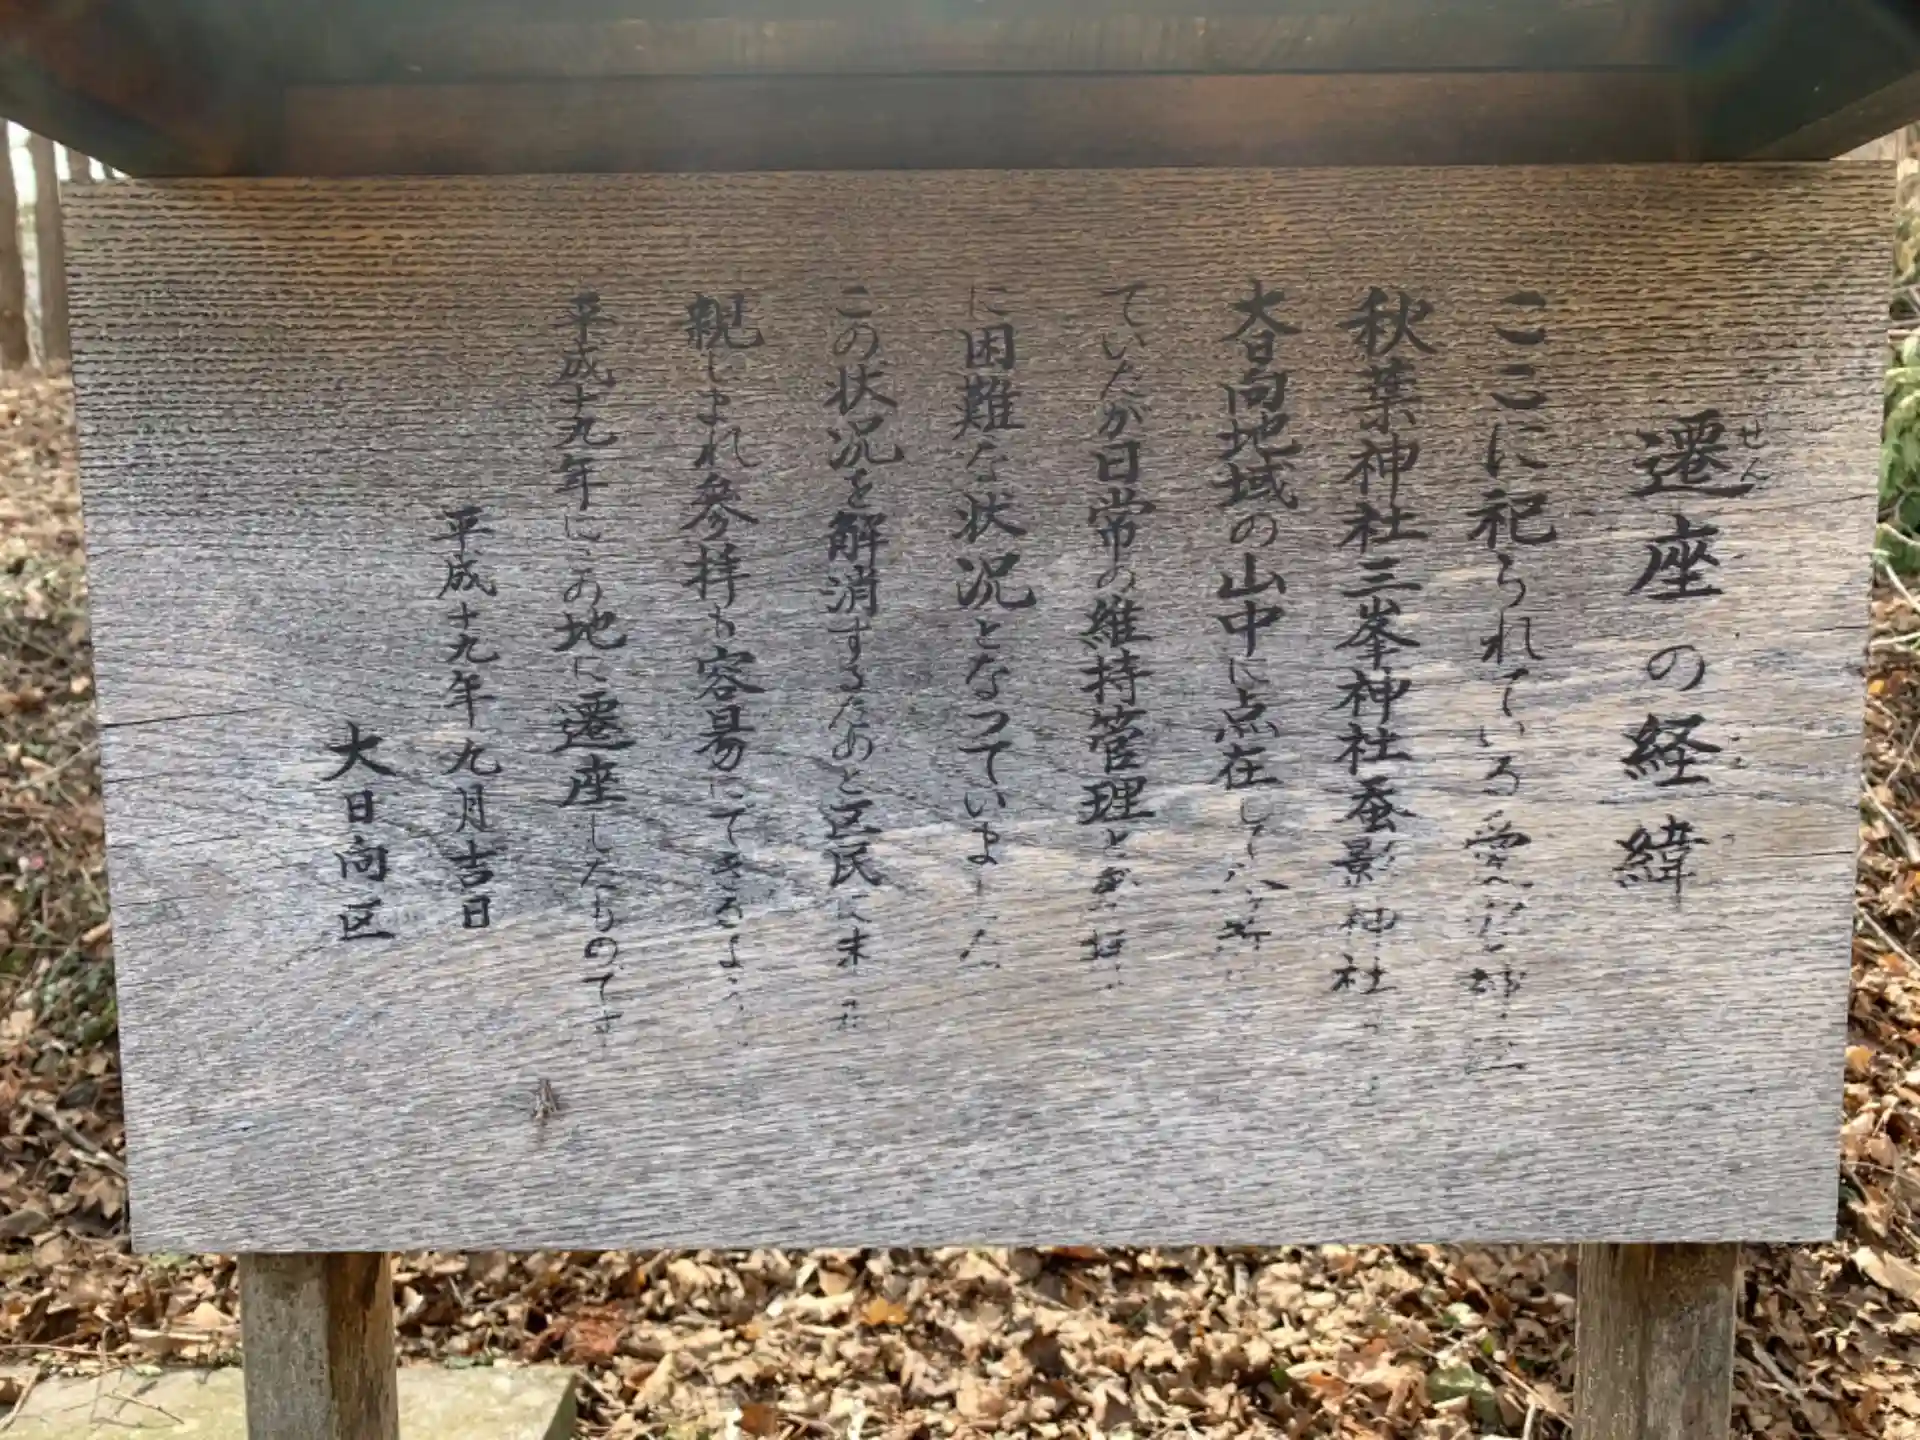 遷座の経緯
せん
ここに祀られている愛宕神社
秋葉神社三峯神社蚕影神社
大日向地域の山中に点在して
ていたが日常の維持管理と
に困難な状況となっていました
この状況を解消するためと区民に末
親しまれ参拝も容易にできるよう
平成十九年にこの地に遷座したものです
平成十九年九月吉日
大日向区